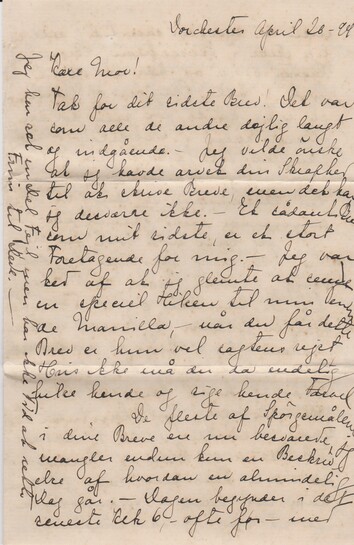 Dorchester April 20-99
Kære Mor!
Tak for dit sidste Brev! Det var
som alle de andre dejlig langt
og indgående. – Jeg vilde ønske
at jeg havde arvet din
til at skrive Breve, men det har
jeg desværre ikke. – Et sådant
som mit sidste, er et stort
Foretagende for mig. – Jeg var
ked af at jeg glemte at sende
en speciel Hilsen til min
de Mamilla, – når du får dette
Brev er hun vel sagtens rejst
Hvis ikke må du da endelig
hilse hende og sige hende Farvel
De fleste af Spørgsmålene
i dine Breve er nu besvarede, jeg
mangler endnu kun en
else af hvordan en almindelig
Dag går. – Dagen begynder i det
seneste Kl. 6, – ofte før – med
Jeg har
Tid at